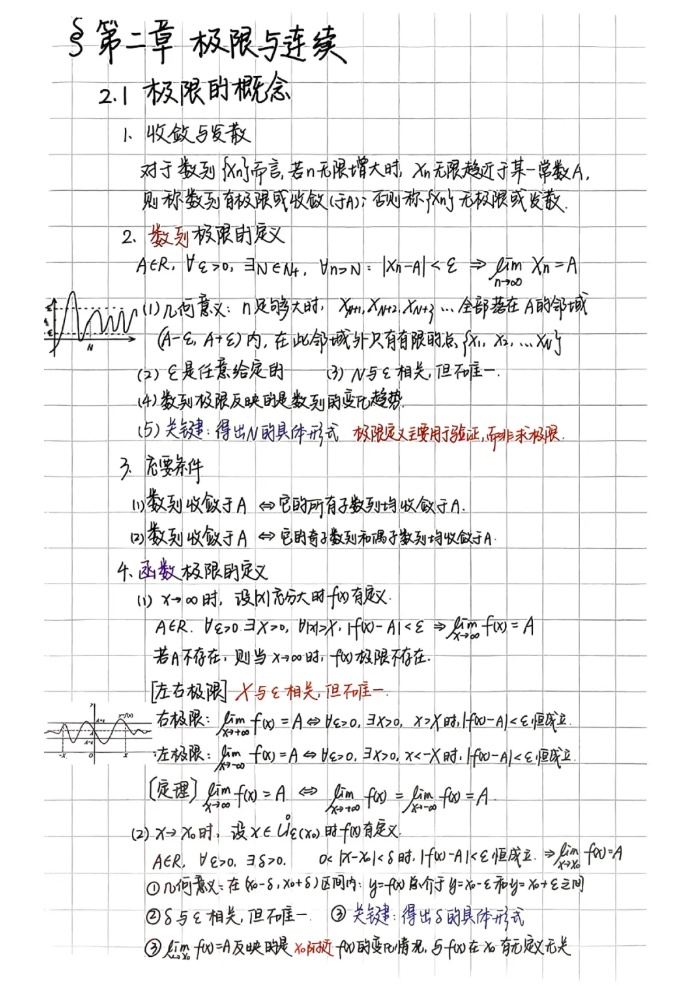 § 第二章 极限与连续
2.1 极限的概念
1. 收敛与发散
对于数列{Xn}而言,若n无限增大时, Xn无限趋近于某一常数A,
则称数列有极限或收敛(于A); 否则称{Xn}无极限或发散.
2. 数列极限的定义
A∈R, ∀ε>0, ∃N∈N+, ∀n>N: |Xn-A|<ε ⇒ lim n→∞ Xn=A
(1) 几何意义: n足够大时, XN+1, XN+2, XN+3 … 全部落在A的邻域
(A-ε, A+ε)内, 在此邻域外只有有限的点{X1, X2, …XN}
N
(2) ε是任意给定的 (3) N与ε相关, 但不唯一.
(4) 数列极限反映的是数列的变化趋势.
(5) 关键: 得出N的具体形式 极限定义主要用于验证,而非求极限.
3. 充要条件
(1) 数列收敛于A ⇔ 它的所有子数列均收敛于A.
(2) 数列收敛于A ⇔ 它的奇子数列和偶子数列均收敛于A.
4. 函数极限的定义
(1) x→∞时, 设|x|充分大时f(x)有定义.
A∈R. ∀ε>0 ∃X>0, ∀|x|>X, |f(x)-A|<ε ⇒ lim x→∞ f(x)=A
若A不存在, 则当x→∞时, f(x)极限不存在.
[左右极限] X与ε相关, 但不唯一.
右极限: lim x→+∞ f(x)=A ⇔ ∀ε>0, ∃X>0, x>X时,|f(x)-A|<ε恒成立.
左极限: lim x→-∞ f(x)=A ⇔ ∀ε>0, ∃X>0, x<-X时,|f(x)-A|<ε恒成立.
-X 0 X
[定理] lim x→∞ f(x)=A ⇔ lim x→+∞ f(x)= lim x→-∞ f(x)=A.
(2) x→x0时, 设x∈Ůε(x0)时f(x)有定义.
A∈R, ∀ε>0, ∃δ>0, 0<|x-x0|<δ时, |f(x)-A|<ε恒成立. ⇒ lim x→x0 f(x)=A
① 几何意义: 在(x0-δ, x0+δ)区间内: y=f(x)总介于y=x0-ε和y=x0+ε之间
② δ与ε相关, 但不唯一. ③ 关键: 得出δ的具体形式
③ lim x→x0 f(x)=A反映的是x0附近f(x)的变化情况, 与f(x)在x0有无定义无关